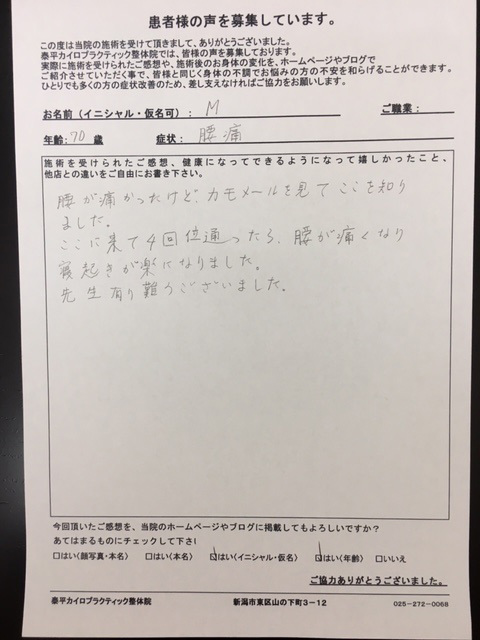 患者様の声を募集しています。
この度は当院の施術を受けて頂きまして、ありがとうございました。
泰平カイロプラクティック整体院では、皆様の声を募集しております。
実際に施術を受けられたご感想や、施術後のお身体の変化を、ホームページやブログで
ご紹介させていただく事で、皆様と同じく身体の不調でお悩みの方の不安を和らげることができます。
ひとりでも多くの方の症状改善のため、差し支えなければご協力をお願いします。
お名前（イニシャル・仮名可）： M ご職業：
年齢：70 歳 症状： 腰痛
施術を受けられたご感想、健康になってできるようになって嬉しかったこと、
他店との違いをご自由にお書き下さい。
腰が痛かったけど、カモメールを見てここを知り
ました。
ここに来て4回位通ったら、腰が痛くなり
寝起きが楽になりました。
先生有り難うございました。
今回頂いたご感想を、当院のホームページやブログに掲載してもよろしいですか？
あてはまるものにチェックして下さい！
□はい（顔写真・本名） □はい（本名） ☑はい（イニシャル・仮名） ☑はい（年齢） □いいえ
ご協力ありがとうございました。
泰平カイロプラクティック整体院 新潟市東区山の下町3－12 025－272－0068